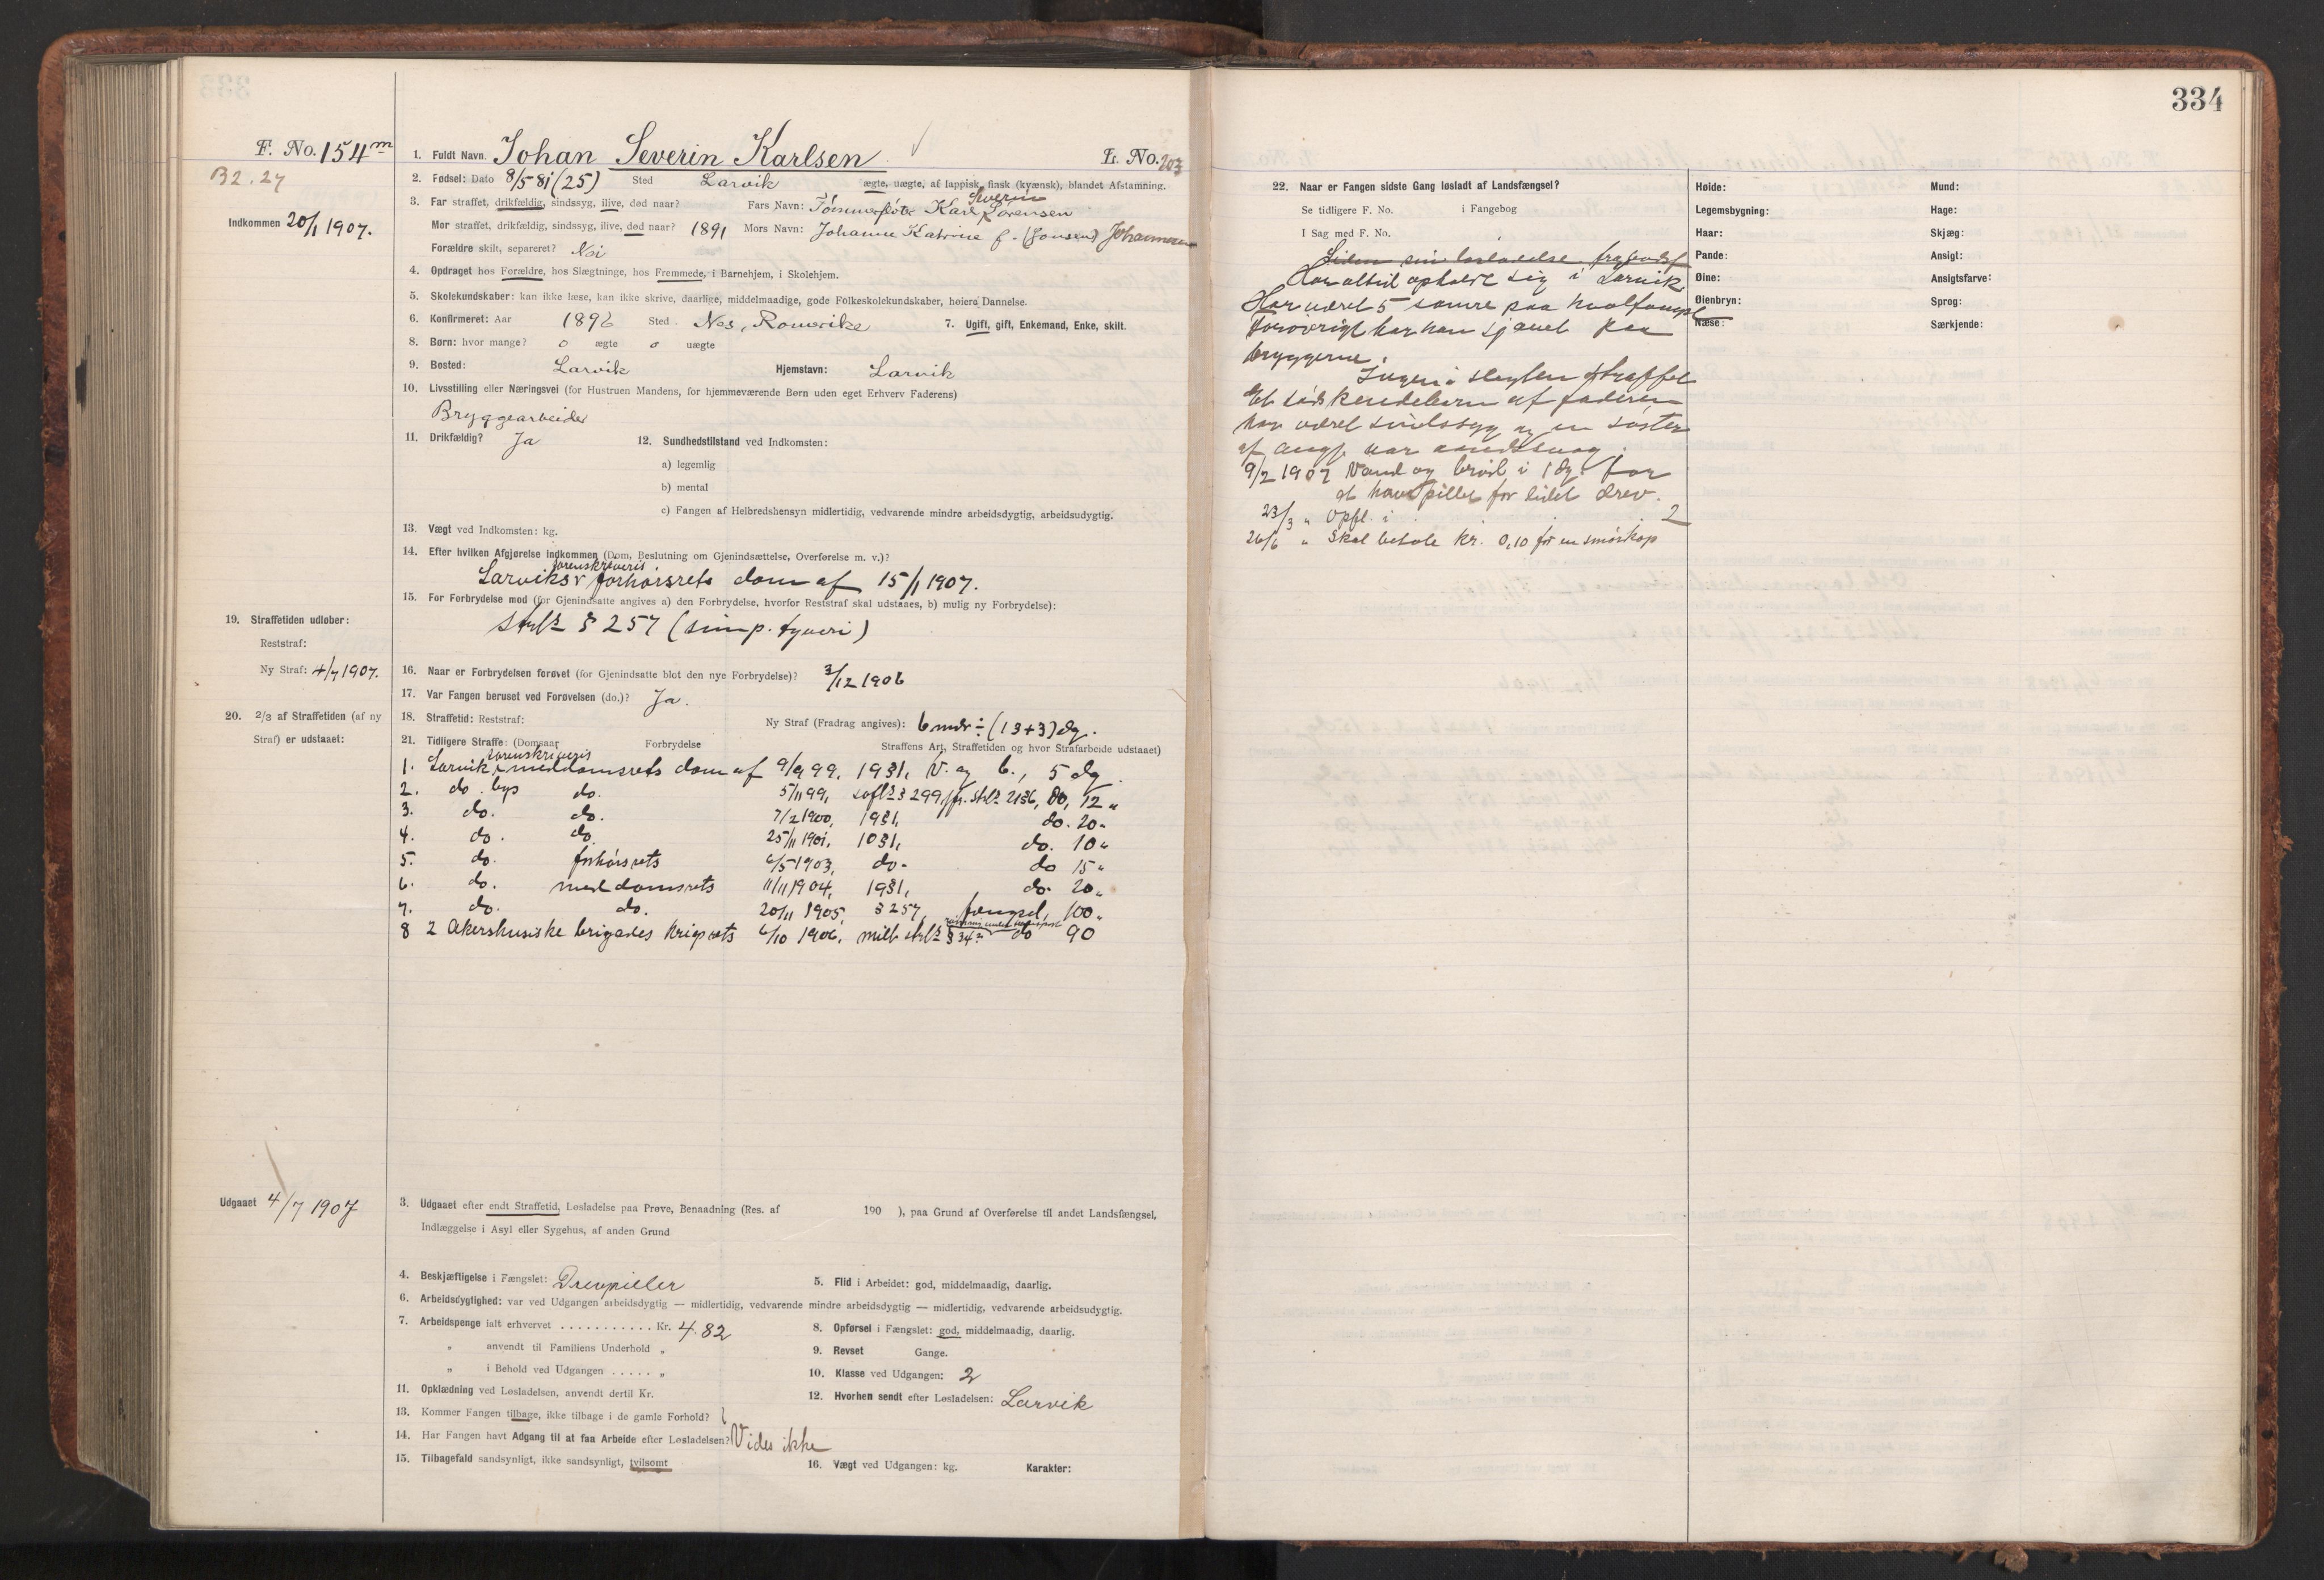 334
F. No. 154 m
1. Fuldt Navn. Johan Severin Karlsen
L. No. 203
B2.27
2. Fødsel: Dato 8/5 81 (25) Sted Larvik ægte, uægte, af lappisk, finsk (kvænsk), blandet Afstamning.
Indkommen 20/1 1907.
3. Far straffet, drikfældig, sindssyg, ilive, død naar? Fars Navn: Tømmerfløter Karl Severin Sørensen
Mor straffet, drikfældig, sindssyg, ilive, død naar? 1891 Mors Navn: Johanne Katrine f. (Jonsen) Johannesen
Forældre skilt, separeret? Nei
4. Opdraget hos Forældre, hos Slægtninge, hos Fremmede, i Barnehjem, i Skolehjem.
5. Skolekundskaber: kan ikke læse, kan ikke skrive, daarlige, middelmaadige, gode Folkeskolekundskaber, høiere Dannelse.
6. Konfirmeret: Aar 1896 Sted Nes, Romerike 7. Ugift, gift, Enkemand, Enke, skilt.
8. Børn: hvor mange? 0 ægte 0 uægte
9. Bosted: Larvik Hjemstavn: Larvik
10. Livsstilling eller Næringsvei (for Hustruen Mandens, for hjemmeværende Børn uden eget Erhverv Faderens)
Bryggearbeider
11. Drikfældig? Ja 12. Sundhedstilstand ved Indkomsten:
a) legemlig
b) mental
c) Fangen af Helbredshensyn midlertidig, vedvarende mindre arbeidsdygtig, arbeidsudygtig.
13. Vægt ved Indkomsten: kg.
14. Efter hvilken Afgjørelse indkommen (Dom, Beslutning om Gjenindsættelse, Overførelse m. v.)?
sorenskriveris
Larviks forhørsrets dom af 15/1 1907.
15. For Forbrydelse mod (for Gjenindsatte angives a) den Forbrydelse, hvorfor Reststraf skal udstaaes, b) mulig ny Forbrydelse):
Strfl. § 257 (simp. tyveri)
19. Straffetiden udløber:
Reststraf:
Ny Straf: 4/7 1907.
16. Naar er Forbrydelsen forøvet (for Gjenindsatte blot den nye Forbrydelse)? 3/12 1906
17. Var Fangen beruset ved Forøvelsen (do.)? Ja.
20. 2/3 af Straffetiden (af ny Straf) er udstaaet:
18. Straffetid: Reststraf: Ny Straf (Fradrag angives): 6 mdr ÷ (13+3) dg.
21. Tidligere Straffe: (Domsaar Forbrydelse Straffens Art, Straffetiden og hvor Strafarbeide udstaaet)
sorenskriveris
1. Larvik meddomsrets dom af 9/9 99, 19§1, V. og b., 5 dg.
2. do. bys do. 5/11 99, sofl. § 299, jfr. Strl. 21§6, do, 12 "
3. do. do. 7/2 1900, 19§1, do. 20 "
4. do. do. 25/11 1901, 10§1, do. 10 "
5. do. forhørsrets 6/5 1903, do. do 15 "
6. do. meddomsrets 11/11 1904, 19§1, do. 20 "
7. do. do. 20/11 1905, § 257, fængsel, 100 "
8 2 Akershusiske brigades krigsrets 6/10 1906, milt strl. § 34 do 90
22. Naar er Fangen sidste Gang løsladt af Landsfængsel?
Se tidligere F. No. i Fangebog
I Sag med F. No.
Siden sin løsladelse fra
Har altid opholdt sig i Larvik.
Har været 5 somre paa hvalfangst
forøvrigt har han sjauet paa
bryggerne.
Ingen i slegten straffet
Et søskendebarn af faderen
har været sindssyg og en søster
af angj. var aandssvag.
9/2 1907 Vand og brød i 1 dg. for
at have pillet for lidet drev.
23/3 " Opfl. i 2
26/6 " Skal betale kr. 0,10 for en smørkop
Høide:
Legemsbygning:
Haar:
Pande:
Øine:
Øienbryn:
Næse:
Mund:
Hage:
Skjæg:
Ansigt:
Ansigtsfarve:
Sprog:
Særkjende:
Udgaaet 4/7 1907
3. Udgaaet efter endt Straffetid, Løsladelse paa Prøve, Benaadning (Res. af 190 ), paa Grund af Overførelse til andet Landsfængsel,
Indlæggelse i Asyl eller Sygehus, af anden Grund
4. Beskjæftigelse i Fængslet: Drevpiller 5. Flid i Arbeidet: god, middelmaadig, daarlig.
6. Arbeidsdygtighed: var ved Udgangen arbeidsdygtig — midlertidig, vedvarende mindre arbeidsdygtig — midlertidig, vedvarende arbeidsudygtig.
7. Arbeidspenge ialt erhvervet ........... Kr. 4.82 8. Opførsel i Fængslet: god, middelmaadig, daarlig.
" anvendt til Familiens Underhold " 9. Revset Gange.
" i Behold ved Udgangen ..... " 10. Klasse ved Udgangen: 2
11. Opklædning ved Løsladelsen, anvendt dertil Kr. 12. Hvorhen sendt efter Løsladelsen: Larvik
13. Kommer Fangen tilbage, ikke tilbage i de gamle Forhold?
14. Har Fangen havt Adgang til at faa Arbeide efter Løsladelsen? Vides ikke
15. Tilbagefald sandsynligt, ikke sandsynligt, tvilsomt 16. Vægt ved Udgangen: kg. Karakter: